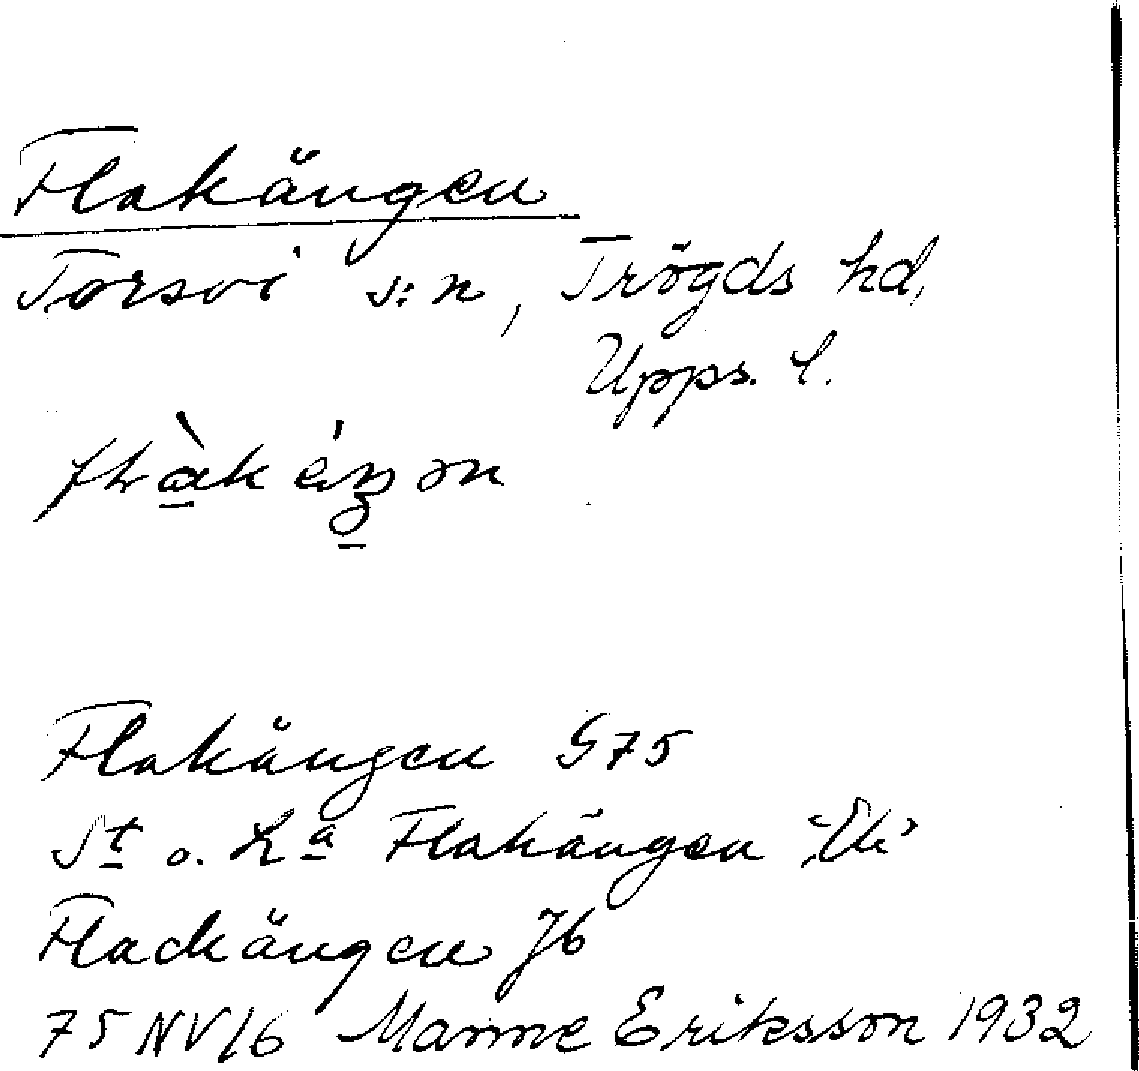 Flakängen
Torsvi s:n, Trögds hd,
Upps. l.
Flakängen G75
St o. La Flakängen Ek
Flackängen Jb
75 NV/6 Manne Eriksson 1932